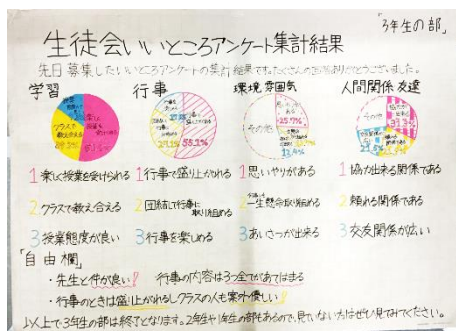 「3年生の部」
生徒会いいところアンケート集計結果
先日募集したいいところアンケートの集計結果です。たくさんの回答ありがとうございました。
学習 行事 環境 雰囲気 人間関係 友達
クラスで教え合える
55.1%
その他
25.7%
その他
1 楽しく授業を受けられる
2 クラスで教え合える
3 授業態度が良い
1 行事で盛り上がれる
2 団結して行事に取り組める
3 行事を楽しめる
1 思いやりがある
2 一生懸命取り組める
3 あいさつが出来る
1 協力出来る関係である
2 頼れる関係である
3 交友関係が広い
「自由欄」
・先生と仲が良い! 行事の内容は3つ全てがあてはまる
・行事のときは盛り上がれるしクラスの人も案外優しい!
以上で3年生の部は終了となります。2年生や1年生の部もあるので、見ていない方はぜひ見てみてください。